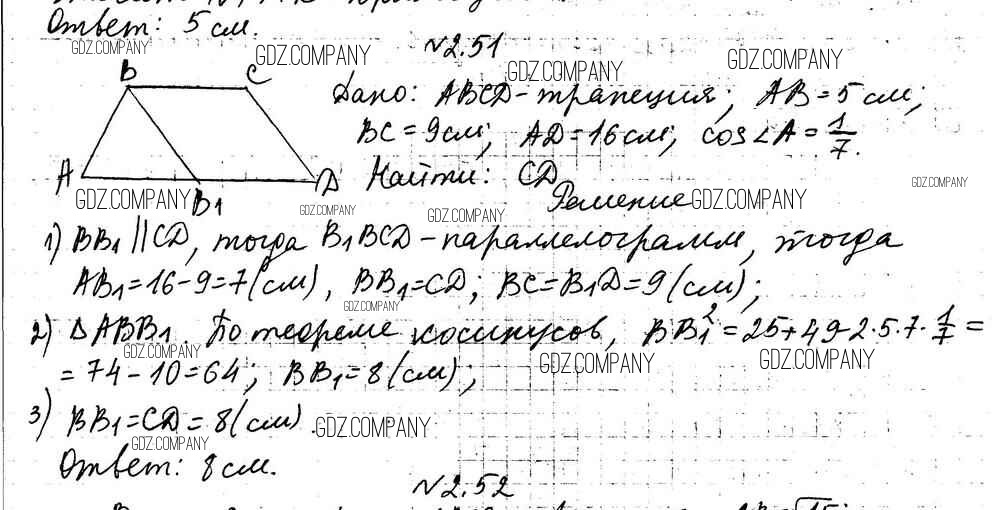 Ответ: 5 см.
GDZ.COMPANY
№2.51
GDZ.COMPANY
GDZ.COMPANY
GDZ.COMPANY
B C
Дано: ABCD-трапеция; AB=5 см;
BC=9см; AD=16см; cos∠A=1/7.
A D Найти: CD
GDZ.COMPANY
B1
GDZ.COMPANY
GDZ.COMPANY
Решение
GDZ.COMPANY
GDZ.COMPANY
1) BB1 || CD, тогда B1BCD-параллелограмм, тогда
AB1=16-9=7(см), BB1=CD; BC=B1D=9(см);
GDZ.COMPANY
2) ΔABB1. По теореме косинусов, BB1²=25+49-2·5·7·1/7=
GDZ.COMPANY
=74-10=64; BB1=8(см);
GDZ.COMPANY
GDZ.COMPANY
3) BB1=CD=8(см).
GDZ.COMPANY
GDZ.COMPANY
Ответ: 8 см.
№2.52